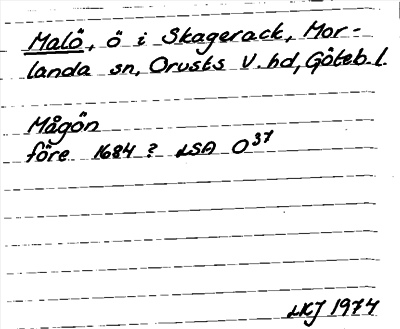 Malö, ö i Skagerack, Mor-
landa sn, Orusts V. hd, Göteb. l.
Mågön
före 1684 ? LSA O37
LKJ 1974